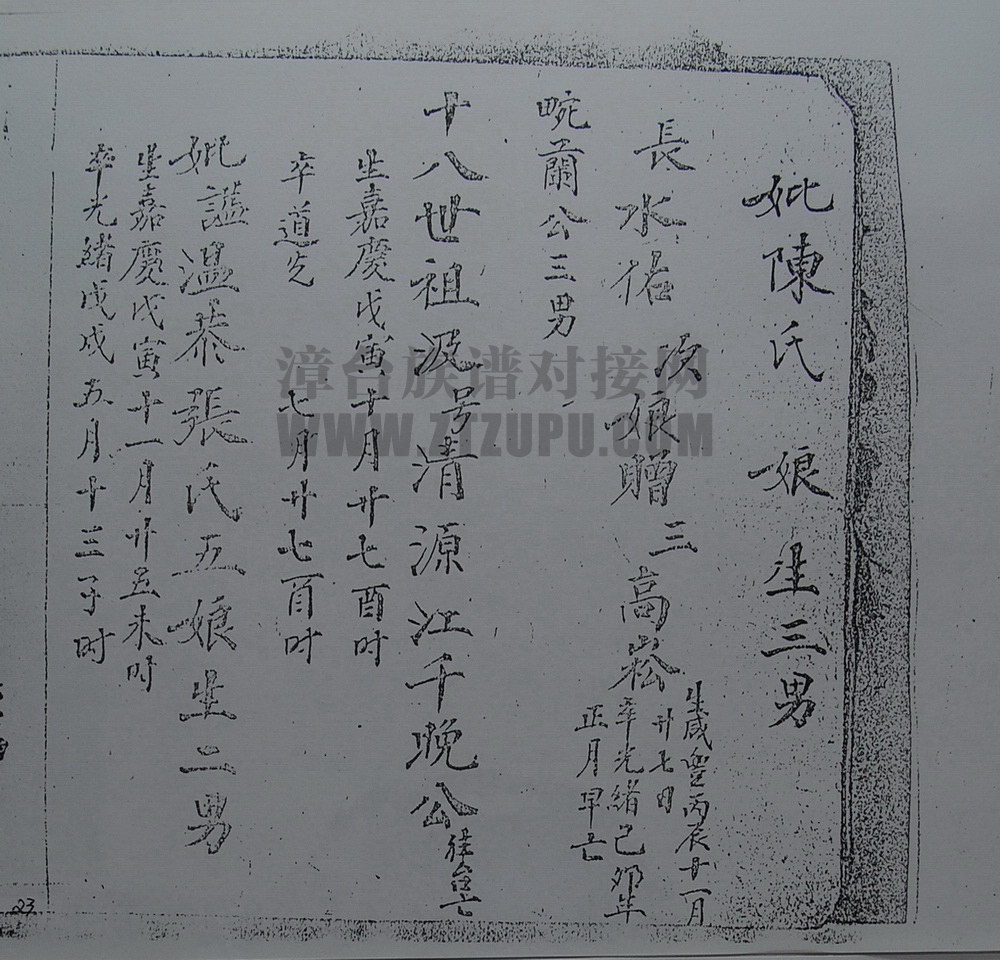 妣陳氏 娘生三男
長水 次娘贈 三高崧
生咸豐丙辰十一月
廿七日
卒光緒己卯年
正月早亡
畹蘭公三男
十八世祖汲号清源江千晚公
往台亡
生嘉慶戊寅十月廿七酉时
卒道光 七月廿七酉时
妣諡溫恭張氏五娘生二男
生嘉慶戊寅十一月廿五未时
卒光緒戊戌五月十三子时
漳台族谱对接网
WWW.ZTZUPU.COM
23